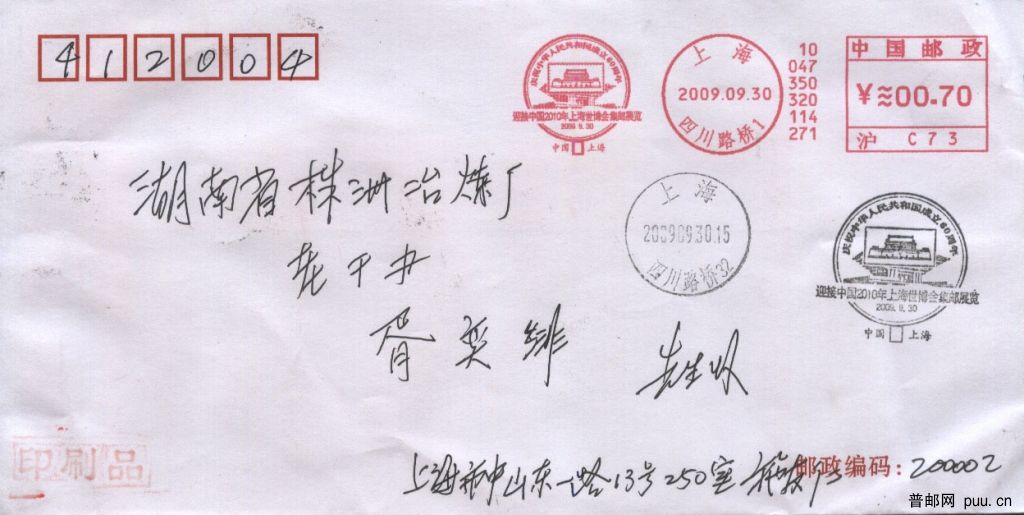 412004
庆祝中华人民共和国成立60周年
迎接中国2010年上海世博会集邮展览
2009.9.30
中国 上海
上海
2009.09.30
四川路桥1
10
047
350
320
114
271
中国邮政
¥≋00.70
沪 C73
湖南省株洲冶炼厂
老干办
胥奕绯 先生收
上海
2009.09.30.15
四川路桥32
庆祝中华人民共和国成立60周年
迎接中国2010年上海世博会集邮展览
2009.9.30
中国 上海
印刷品
上海市中山东一路13号250室
邮政编码：200002
普邮网 puu.cn